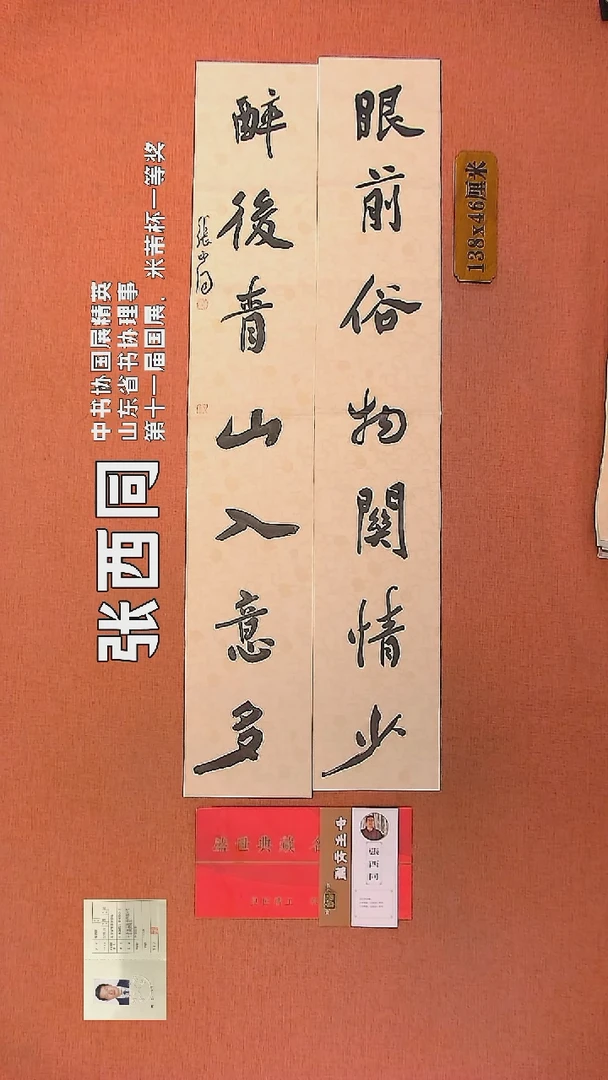 眼前俗物關情少
醉後青山入意多
張西同
张西同
中书协国展精英
山东省书协理事
第十一届国展、米芾杯一等奖
138x46厘米
盛世典藏
張西同